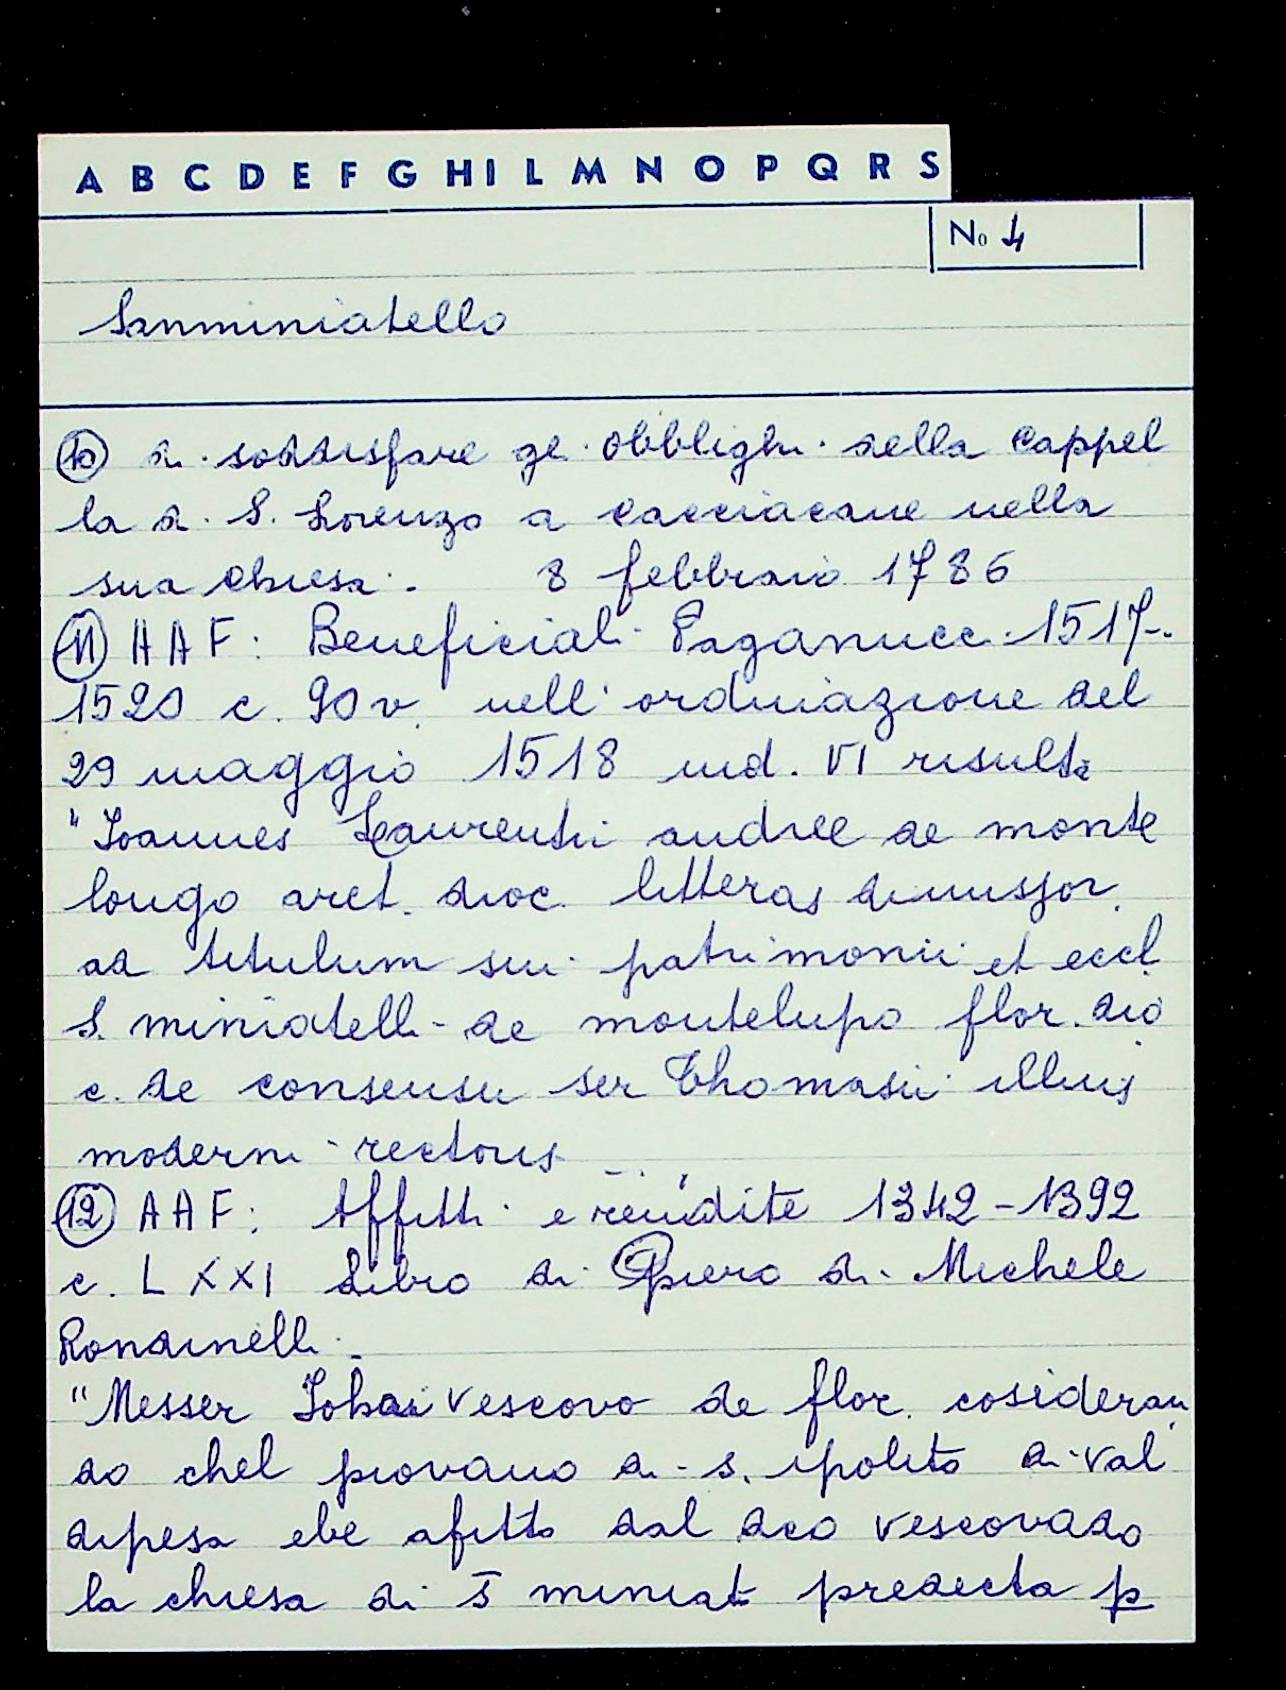 A B C D E F G H I L M N O P Q R S
No 4
Sanminiatello
10 di soddisfare gli obblighi della Cappel
la di S. Lorenzo a Cacciacane nella
sua chiesa. 8 febbraio 1786
11 AAF: Beneficiali Paganucci 1517-
1520 c. 90v nell'ordinazione del
29 maggio 1518 ind. VI risulta
"Ioannes Laurentii andree de monte
longo aret. dioc. litteras dimissor.
ad titulum sui patrimonii et eccl.
S. miniatelli de montelupo flor. dio
c. de consensu ser Thomasii illius
moderni rectoris
12 AAF: Affitti e rendite 1342-1392
c. LXXI Libro di Piero di Michele
Rondinelli.
"Messer Johai vescovo de flor. cosideran
do chel piovano di s. ipolito di val
dipesa ebe afitto dal dco vescovado
la chiesa di S miniat predecta p